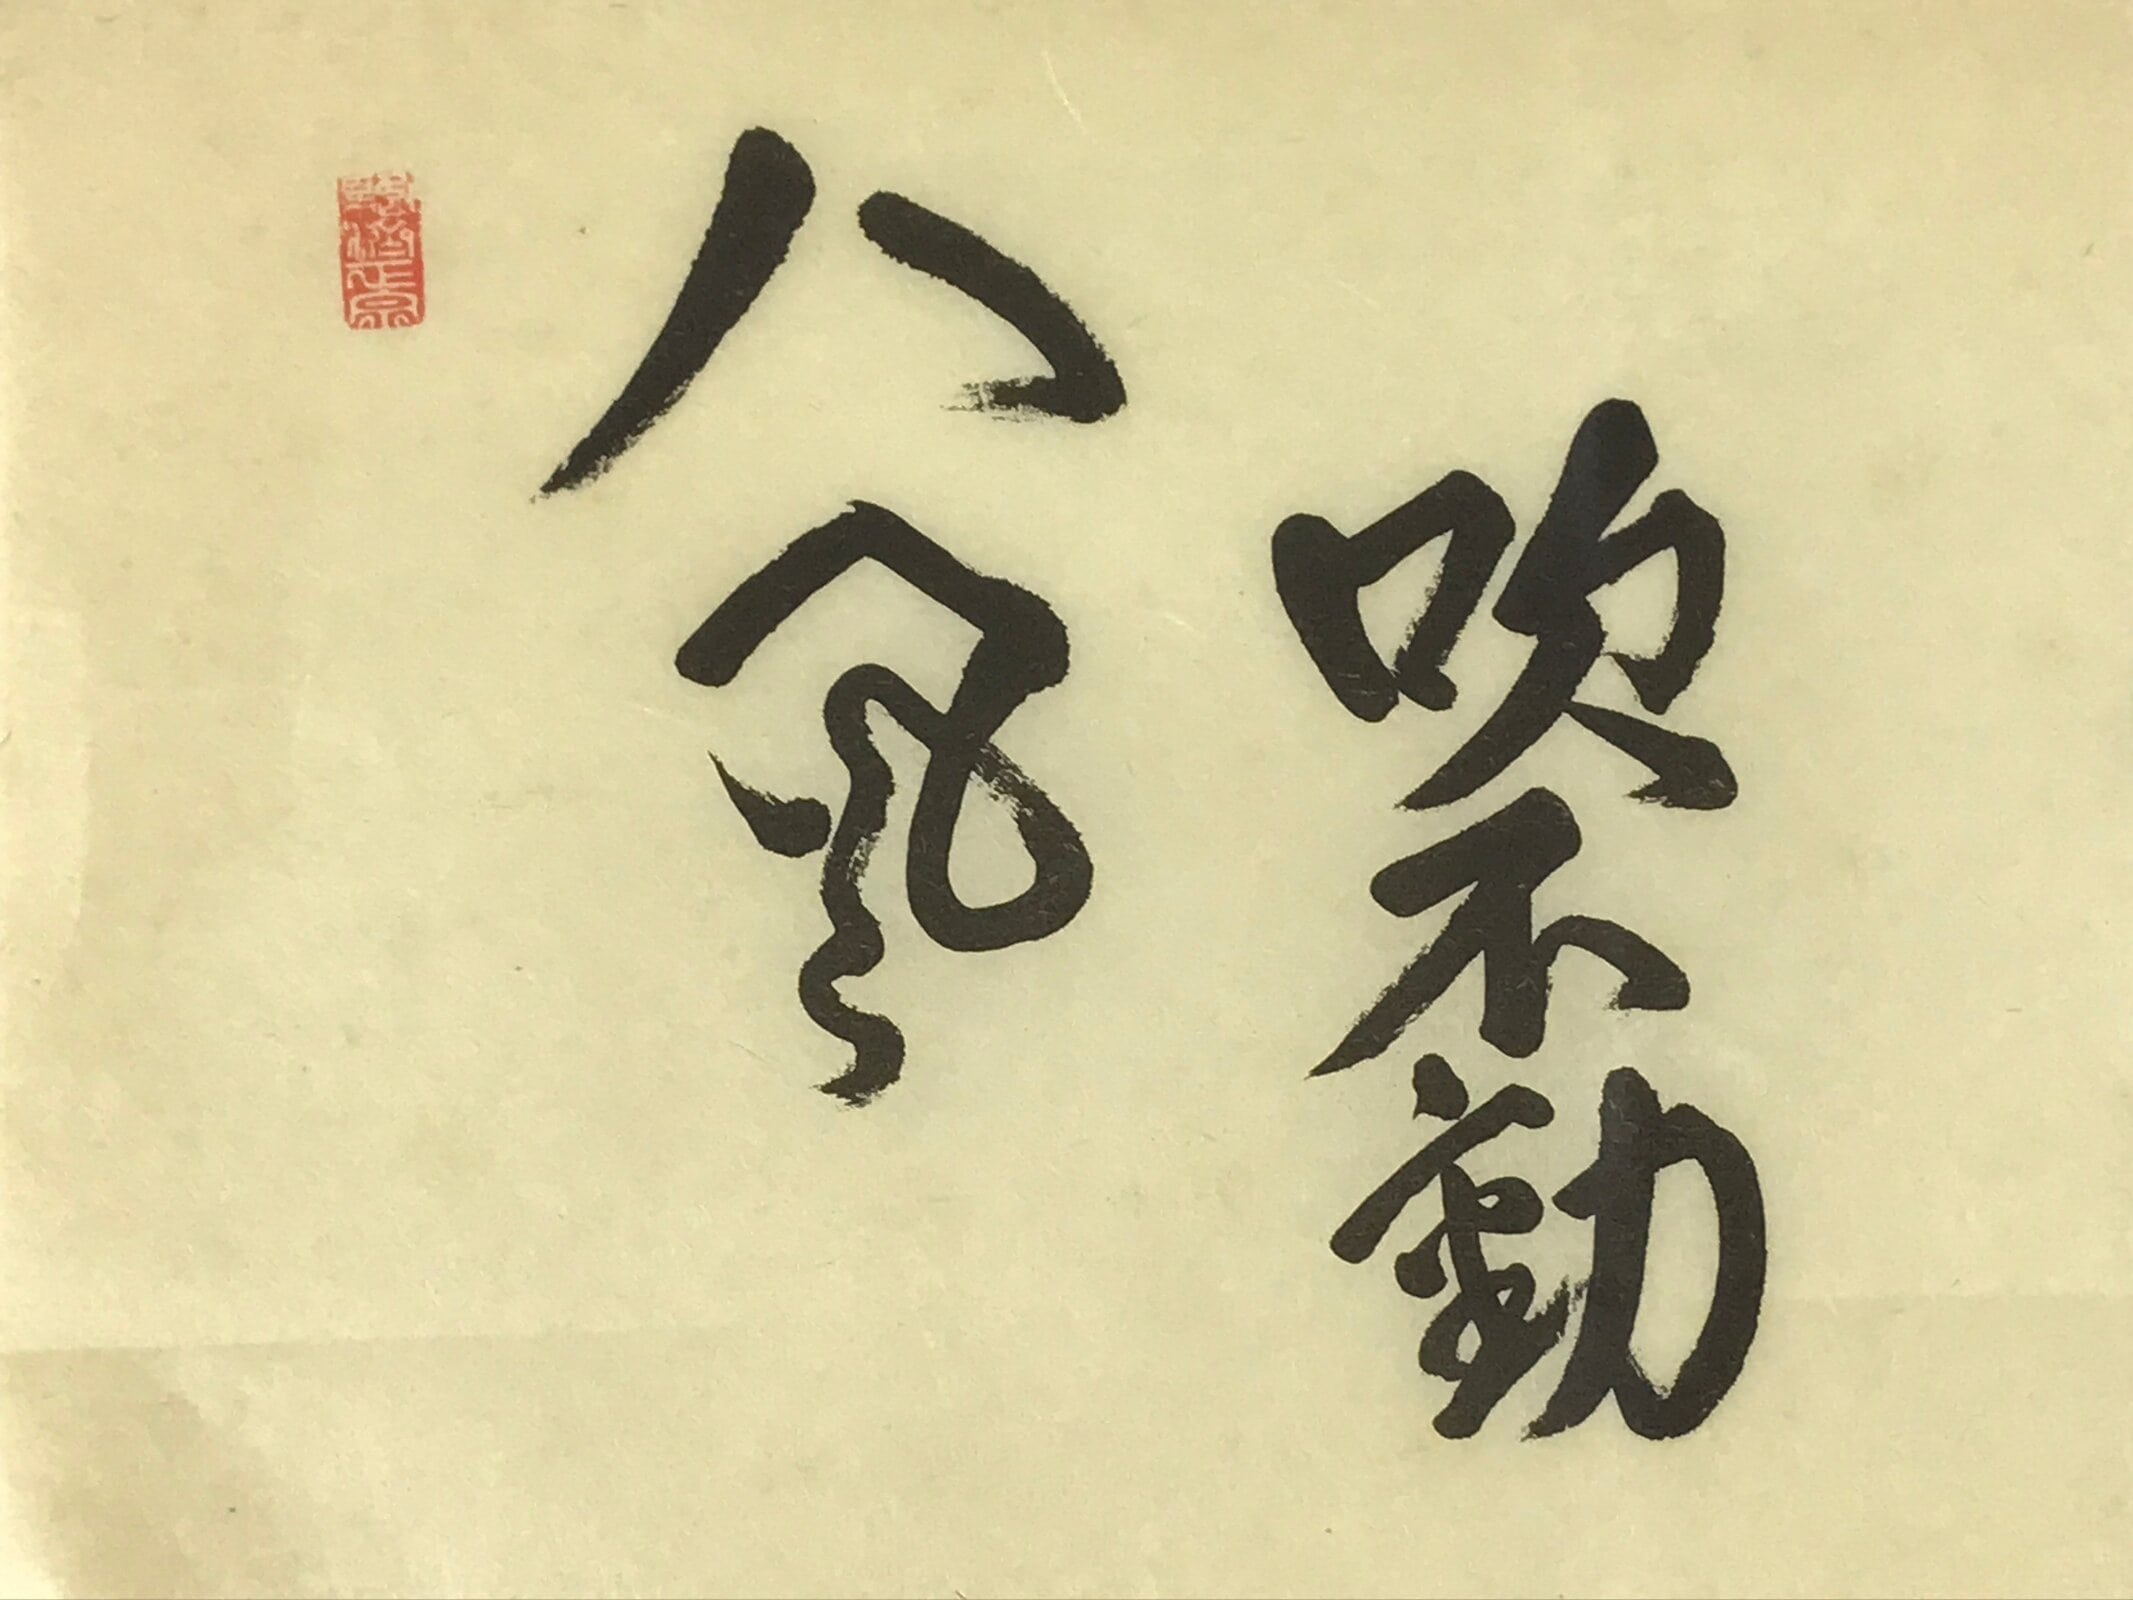 八風
吹不動